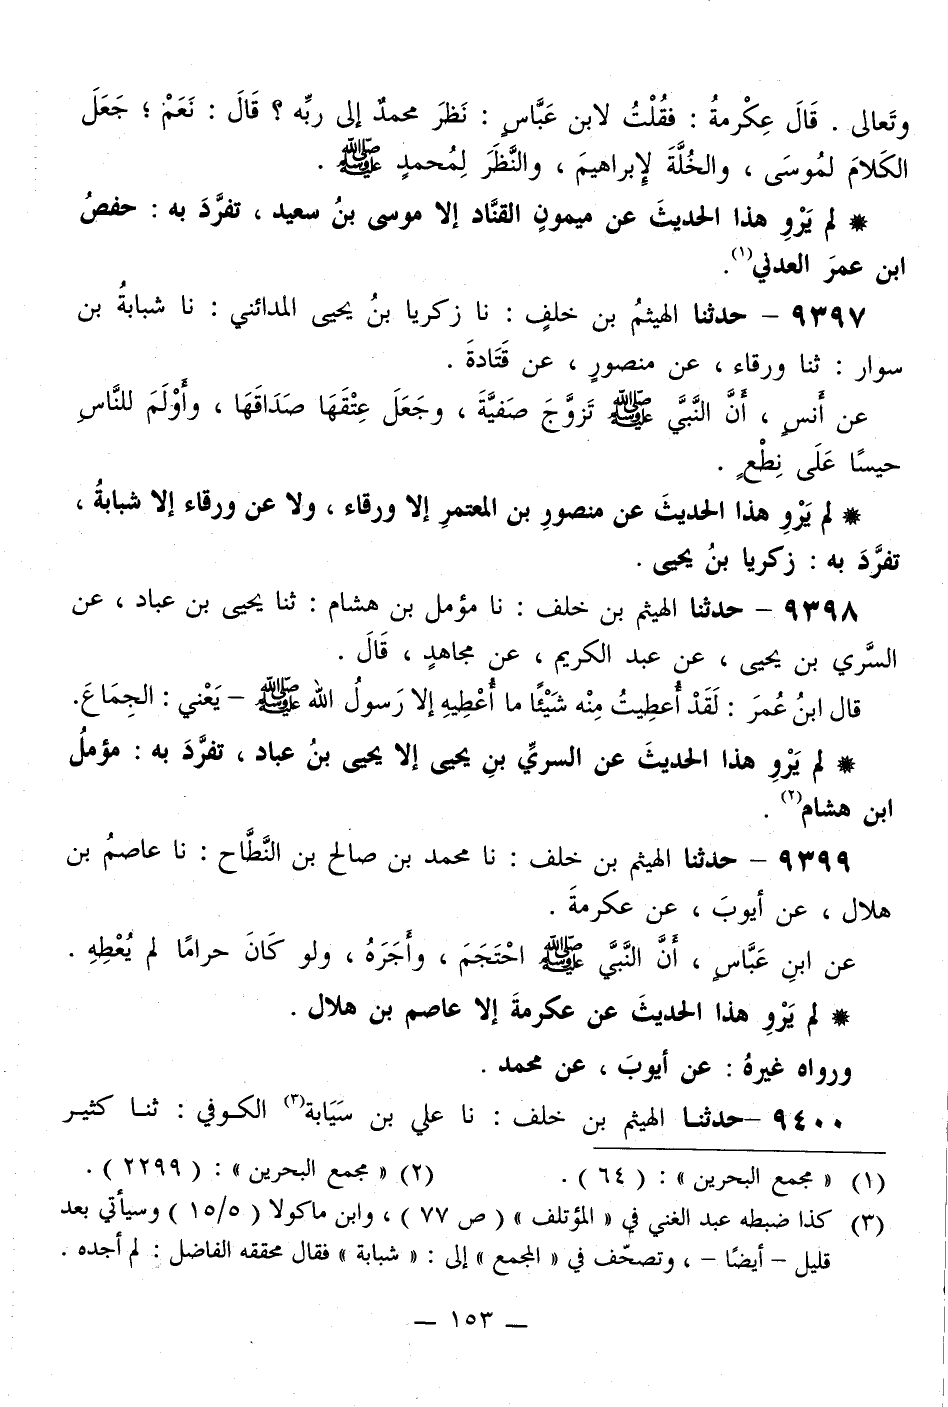 وتَعالى . قَالَ عِكْرمةُ : فقُلْتُ لابن عَبَّاسٍ : نَظرَ محمدٌ إلى ربِّه ؟ قَالَ : نَعَمْ ؛ جَعَلَ
الكَلامَ لمُوسَى ، والخُلَّةَ لإِبراهيمَ ، والنَّظَرَ لِمُحمدٍ ﷺ .
* لم يَرْوِ هذا الحديثَ عن ميمونٍ القنَّاد إلا موسى بنُ سعيد ، تفرَّدَ به : حفصُ
ابن عمرَ العدني(١).
٩٣٩٧ – حدثنا الهيثمُ بن خلفٍ : نا زكريا بنُ يحيى المدائني : نا شبابةُ بن
سوار : ثنا ورقاء ، عن منصورٍ ، عن قَتَادةَ .
عن أَنسٍ ، أَنَّ النَّبيَّ ﷺ تَزوَّجَ صَفيَّةَ ، وجَعَلَ عِتْقَهَا صَدَاقَهَا ، وأَوْلَمَ للنَّاسِ
حيسًا عَلَى نِطْعٍ .
* لم يَرْوِ هذا الحديثَ عن منصورِ بن المعتمرِ إلا ورقاء ، ولا عن ورقاء إلا شبابةُ ،
تفرَّدَ به : زكريا بنُ يحيى .
٩٣٩٨ – حدثنا الهيثم بن خلف : نا مؤمل بن هشام : ثنا يحيى بن عباد ، عن
السَّري بن يحيى ، عن عبد الكريم ، عن مجاهدٍ ، قَالَ .
قال ابنُ عُمرَ : لَقَدْ أُعطِيتُ مِنْه شَيْئًا ما أُعْطِيهِ إلا رَسولُ الله ﷺ – يَعْني : الجِمَاعَ.
* لم يَرْوِ هذا الحديثَ عن السريِّ بنِ يحيى إلا يحيى بنُ عباد ، تفرَّدَ به : مؤملُ
ابن هشام(٢) .
٩٣٩٩ – حدثنا الهيثم بن خلف : نا محمد بن صالح بن النَّطَّاح : نا عاصمُ بن
هلال ، عن أيوبَ ، عن عكرمةَ .
عن ابنِ عَبَّاسٍ ، أَنَّ النَّبيَّ ﷺ احْتَجَمَ ، وأَجَرَهُ ، ولو كَانَ حرامًا لم يُعْطِهِ .
* لم يَرْوِ هذا الحديثَ عن عكرمةَ إلا عاصم بن هلال .
ورواه غيرهُ : عن أيوبَ ، عن محمد .
٩٤٠٠ –حدثنـا الهيثم بن خلف : نا علي بن سَيَابة(٣) الكـوفي : ثنـا كثيـر
(١) « مجمع البحرين » : ( ٦٤ ) . (٢) « مجمع البحرين » : ( ٢٢٩٩ ) .
(٣) كذا ضبطه عبد الغني في « المؤتلف » ( ص ٧٧ ) ، وابن ماكولا ( ١٥/٥ ) وسيأتي بعد
قليل – أيضًا – ، وتصحّف في « المجمع » إلى : « شبابة » فقال محققه الفاضل : لم أجده .
– ١٥٣ –